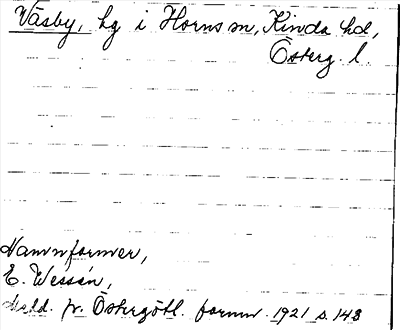 Väsby, hg i Horns sn, Kinda hd,
Österg. l.
Namnformer,
E. Wessén,
Medd. fr. Östergötl. fornm. 1921 s. 148